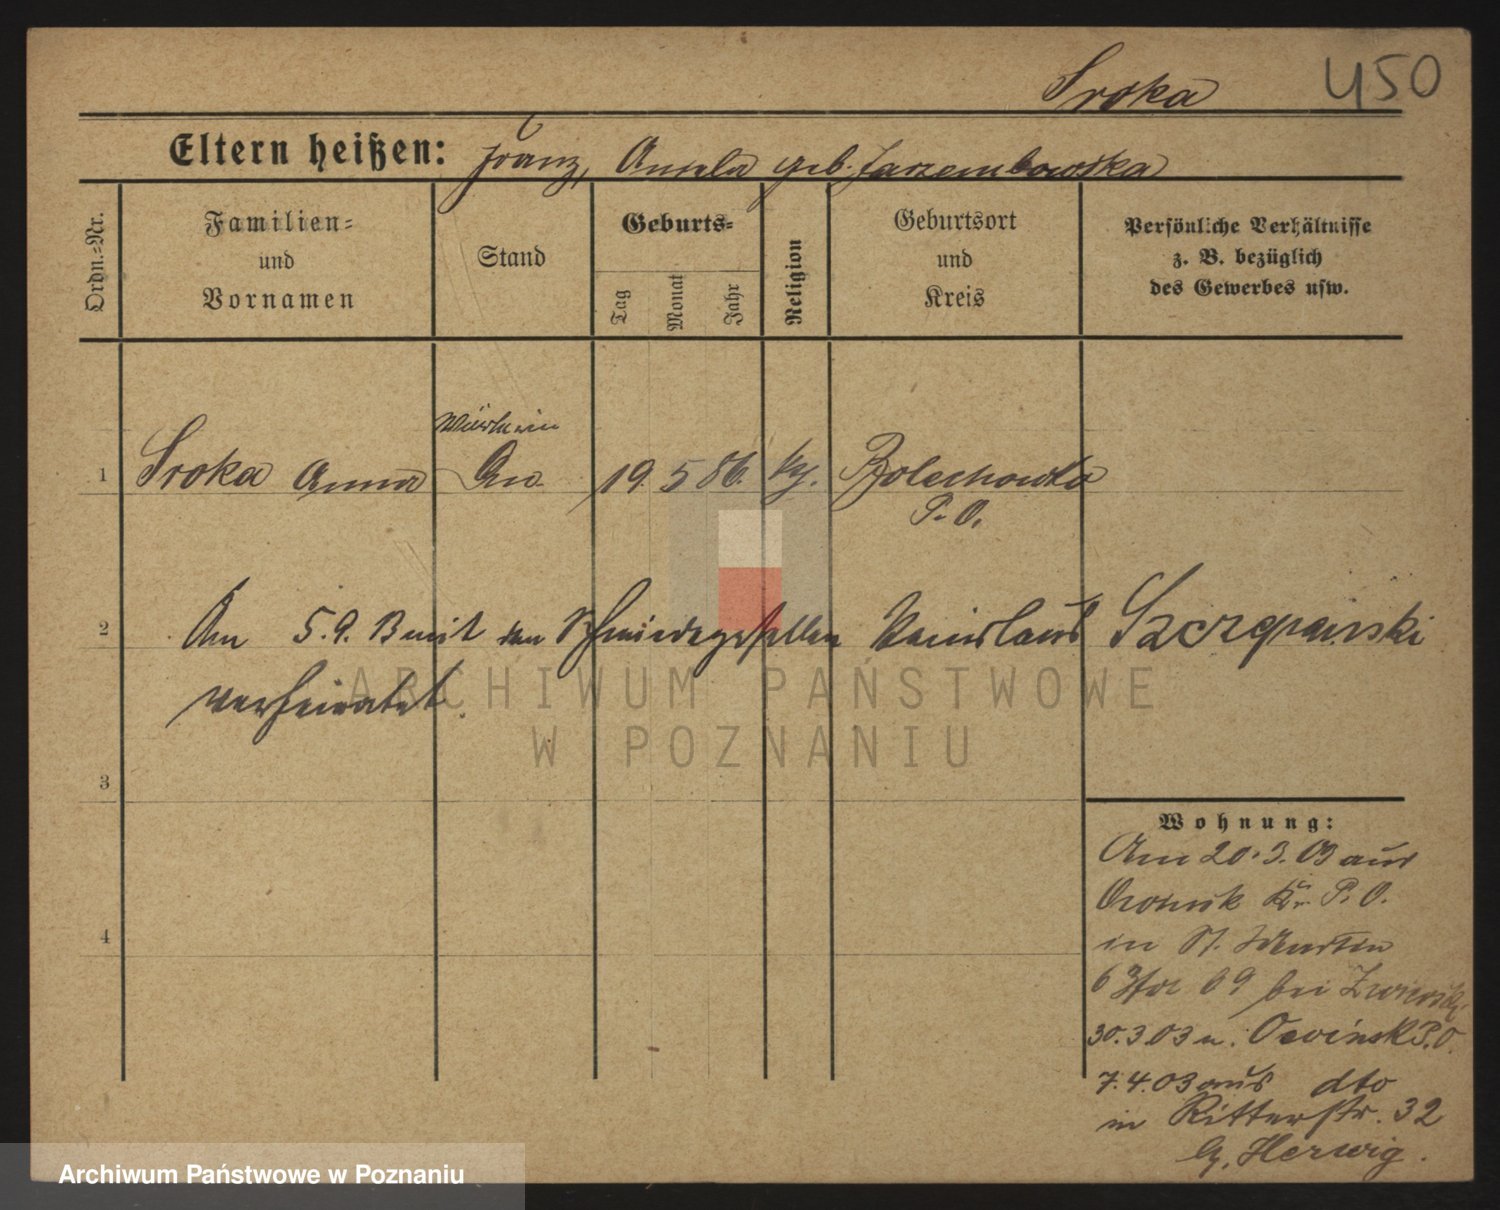 Sroka 450
Eltern heißen: Franz, Aniela geb. Jarzembowska
Ordn.-Nr.
Familien-
und
Vornamen
Stand
Geburts-
Tag
Monat
Jahr
Religion
Geburtsort
und
Kreis
Persönliche Verhältnisse
z. B. bezüglich
des Gewerbes usw.
1 Sroka Anna 19. 5 86. kg. Bolechowko
P. O.
2 Am 5.9.13 mit dem Schmiedegesellen Szczepanski
verheiratet.
3
4
ARCHIWUM PAŃSTWOWE
W POZNANIU
Wohnung:
Am 20.3.03 aus
Kr. P. O.
in St. Martin
69 bei
30.3.03 n. Owinsk P. O.
7.4.03 aus dto
in Ritterstr. 32
b. Herwig.
Archiwum Państwowe w Poznaniu